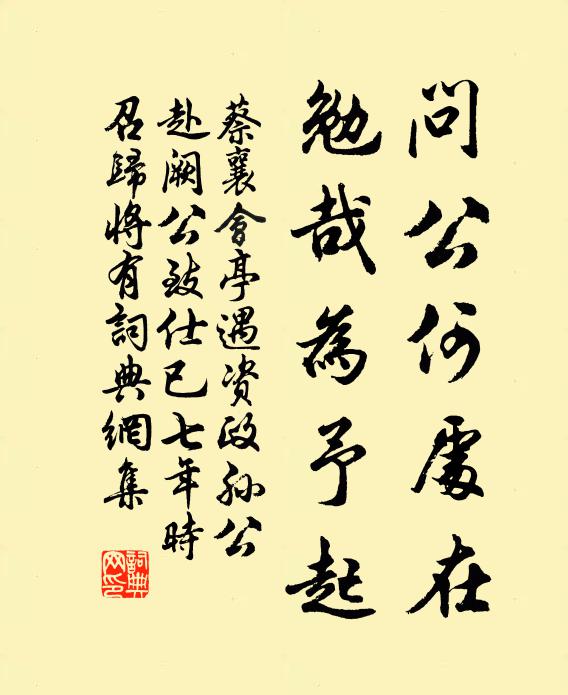 問公何處在
勉哉為予起
蔡襄會亭遇資政孫公
赴闕公致仕已七年時
召歸將有詞典網集
詞典網印